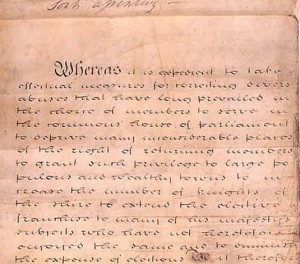 Whereas it is expedient to take
effectual measures for correcting divers
abuses that have long prevailed in
the choice of members to serve in
the commons house of parliament
to deprive many inconsiderable places
of the right of returning members
to grant such privilege to large po
pulous and wealthy towns to in
crease the number of knights of
the shire to extend the elective
franchise to many of his majesty's
subjects who have not heretofore
enjoyed the same and to diminish
the expense of elections Be it therefore